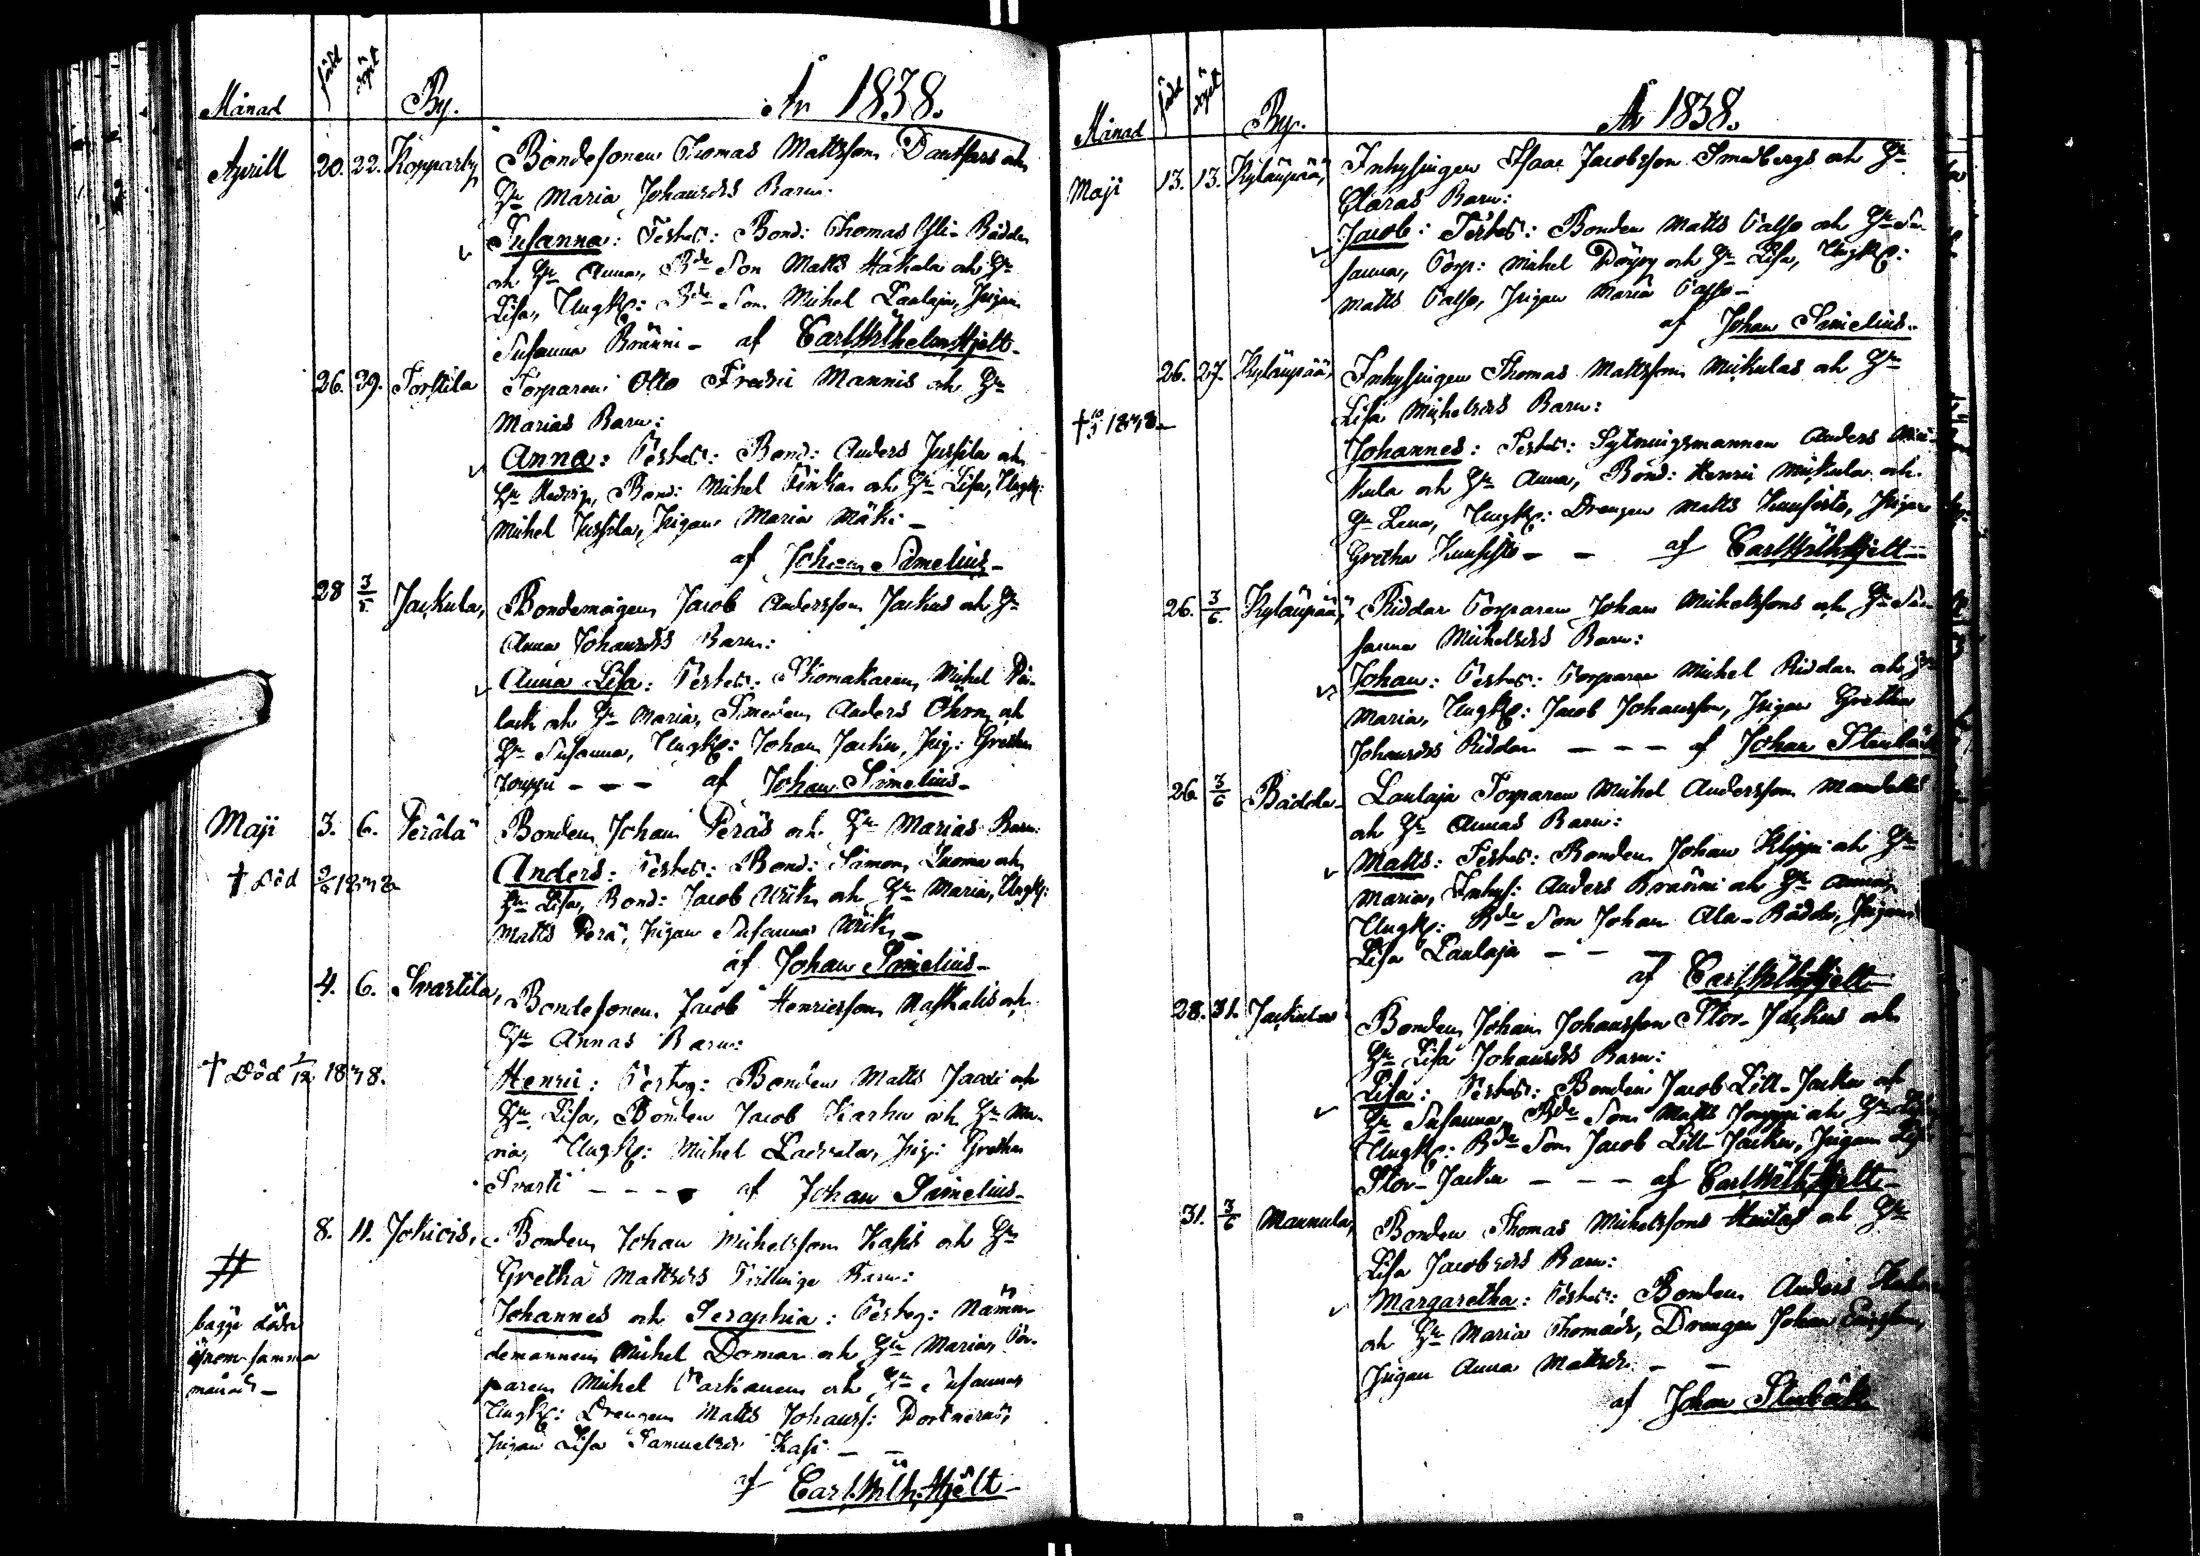 Månad född döpt By. År 1838.
Aprill 20. 22. Kopparby Bondesonen Thomas Mattsson och
Hu Maria Johansdrs Barn:
Susanna: Testes: Bond: Thomas Yli-Rädda
och Hu Anna, Bde Son Matts Hakala och Hu
Lisa, Ungk: Bde Son Michel Laulaja, Pigan
Susanna Bränni – af Carl Wilhelm Hjelt –
26. 29. Torstila Torparen Otto Fredric Mannis och Hu
Marias Barn:
Anna: Testes: Bond: Anders Jussila och
Hu Hedvig, Bond: Michel och Hu Lisa, Ungk:
Michel Jussila, Pigan Maria Mäki –
af Johan Simelius –
28 3/5 Jackula, Bondemågen Jacob Andersson Jackus och Hu
Anna Johansdrs Barn:
Anna Lisa: Testes: Skomakaren Michel
och Hu Maria, Smeden Anders Öhrn och
Hu Susanna, Ungk: Johan Jacku, Pig: Gretha
Jouppi – – – af Johan Simelius –
Maji 3. 6. Perälä Bonden Johan Peräs och Hu Marias Barn:
Anders: Testes: Bond: Simon Luoma och
† död 1838 Hu Lisa, Bond: Jacob och Hu Maria, Ungk:
Matts Perä, Pigan Susanna –
af Johan Simelius –
4. 6. Svartila, Bondesonen Jacob Henricsson och
Hu Annas Barn:
† död 1/12 1838. Henric: Testes: Bonden Matts Jaari och
Hu Lisa, Bonden Jacob Karhu och Hu Ma-
ria, Ungk: Michel Ladvala, Pig: Gretha
Svarti – – – – af Johan Simelius –
8. 11. Jokicis, Bonden Johan Michelsson Kasis och Hu
# Gretha Mattsdrs Tvillinge Barn:
Johannes och Seraphia: Testes: Nämn-
bägge döda demannen Michel Domar och Hu Maria, Tor-
inom samma paren Michel och Hu Susanna,
månad – Ungk: Drengen Matts Johanss:
Pigan Lisa Samuelsdr Kasi – –
af Carl Wilh. Hjelt –
Månad född döpt By. År 1838.
Maji 13. 13. Kyläupää, Inhysingen Isaac Jacobsson Smedbergs och Hu
Claras Barn:
Jacob: Testes: Bonden Matts och Hu Su-
sanna, Torp: Michel och Hu Lisa, Ungk:
Matts, Pigan Maria –
af Johan Simelius –
26. 27. Kyläupää, Inhysingen Thomas Mattsson Mickulas och Hu
† 1838 – Lisa Michelsdrs Barn:
Johannes: Testes: Sytningsmannen Anders Mic-
kula och Hu Anna, Bond: Henric Mickula och
Hu Lena, Ungk: Drengen Matts Kuusisto, Pigan
Gretha Kuusisto – – af Carl Wilh. Hjelt –
26. 3/6 Kyläupää, Riddar Torparen Johan Michelssons och Hu Su-
sanna Michelsdrs Barn:
Johan: Testes: Torparen Michel Riddar och Hu
Maria, Ungk: Jacob Johansson, Pigan Gretha
Johansdrs Riddar – – – af Johan Stenbäck
26. 3/6 Rädda – Laulaja Torparen Michel Andersson
och Hu Annas Barn:
Matts: Testes: Bonden Johan Klippi och Hu
Maria, Inhys: Anders Bränni och Hu Anna,
Ungk: Bde Son Johan Ala-Rädda, Pigan
Lisa Laulaja – – –
af Carl Wilh. Hjelt –
28. 31. Jackula Bonden Johan Johansson Stor-Jackus och
Hu Lisa Johansdrs Barn:
Lisa: Testes: Bonden Jacob Lill-Jacku och
Hu Susanna, Bde Son Matts Jouppi och Hu Lisa,
Ungk: Bde Son Jacob Lill-Jacku, Pigan Lisa
Stor-Jacku – – – af Carl Wilh. Hjelt –
31. 3/6 Mannula, Bonden Thomas Michelssons och Hu
Lisa Jacobsdrs Barn:
Margaretha: Testes: Bonden Anders
och Hu Maria Thomasdr, Drengen Johan
Pigan Anna Mattsdr – –
af Johan Stenbäck